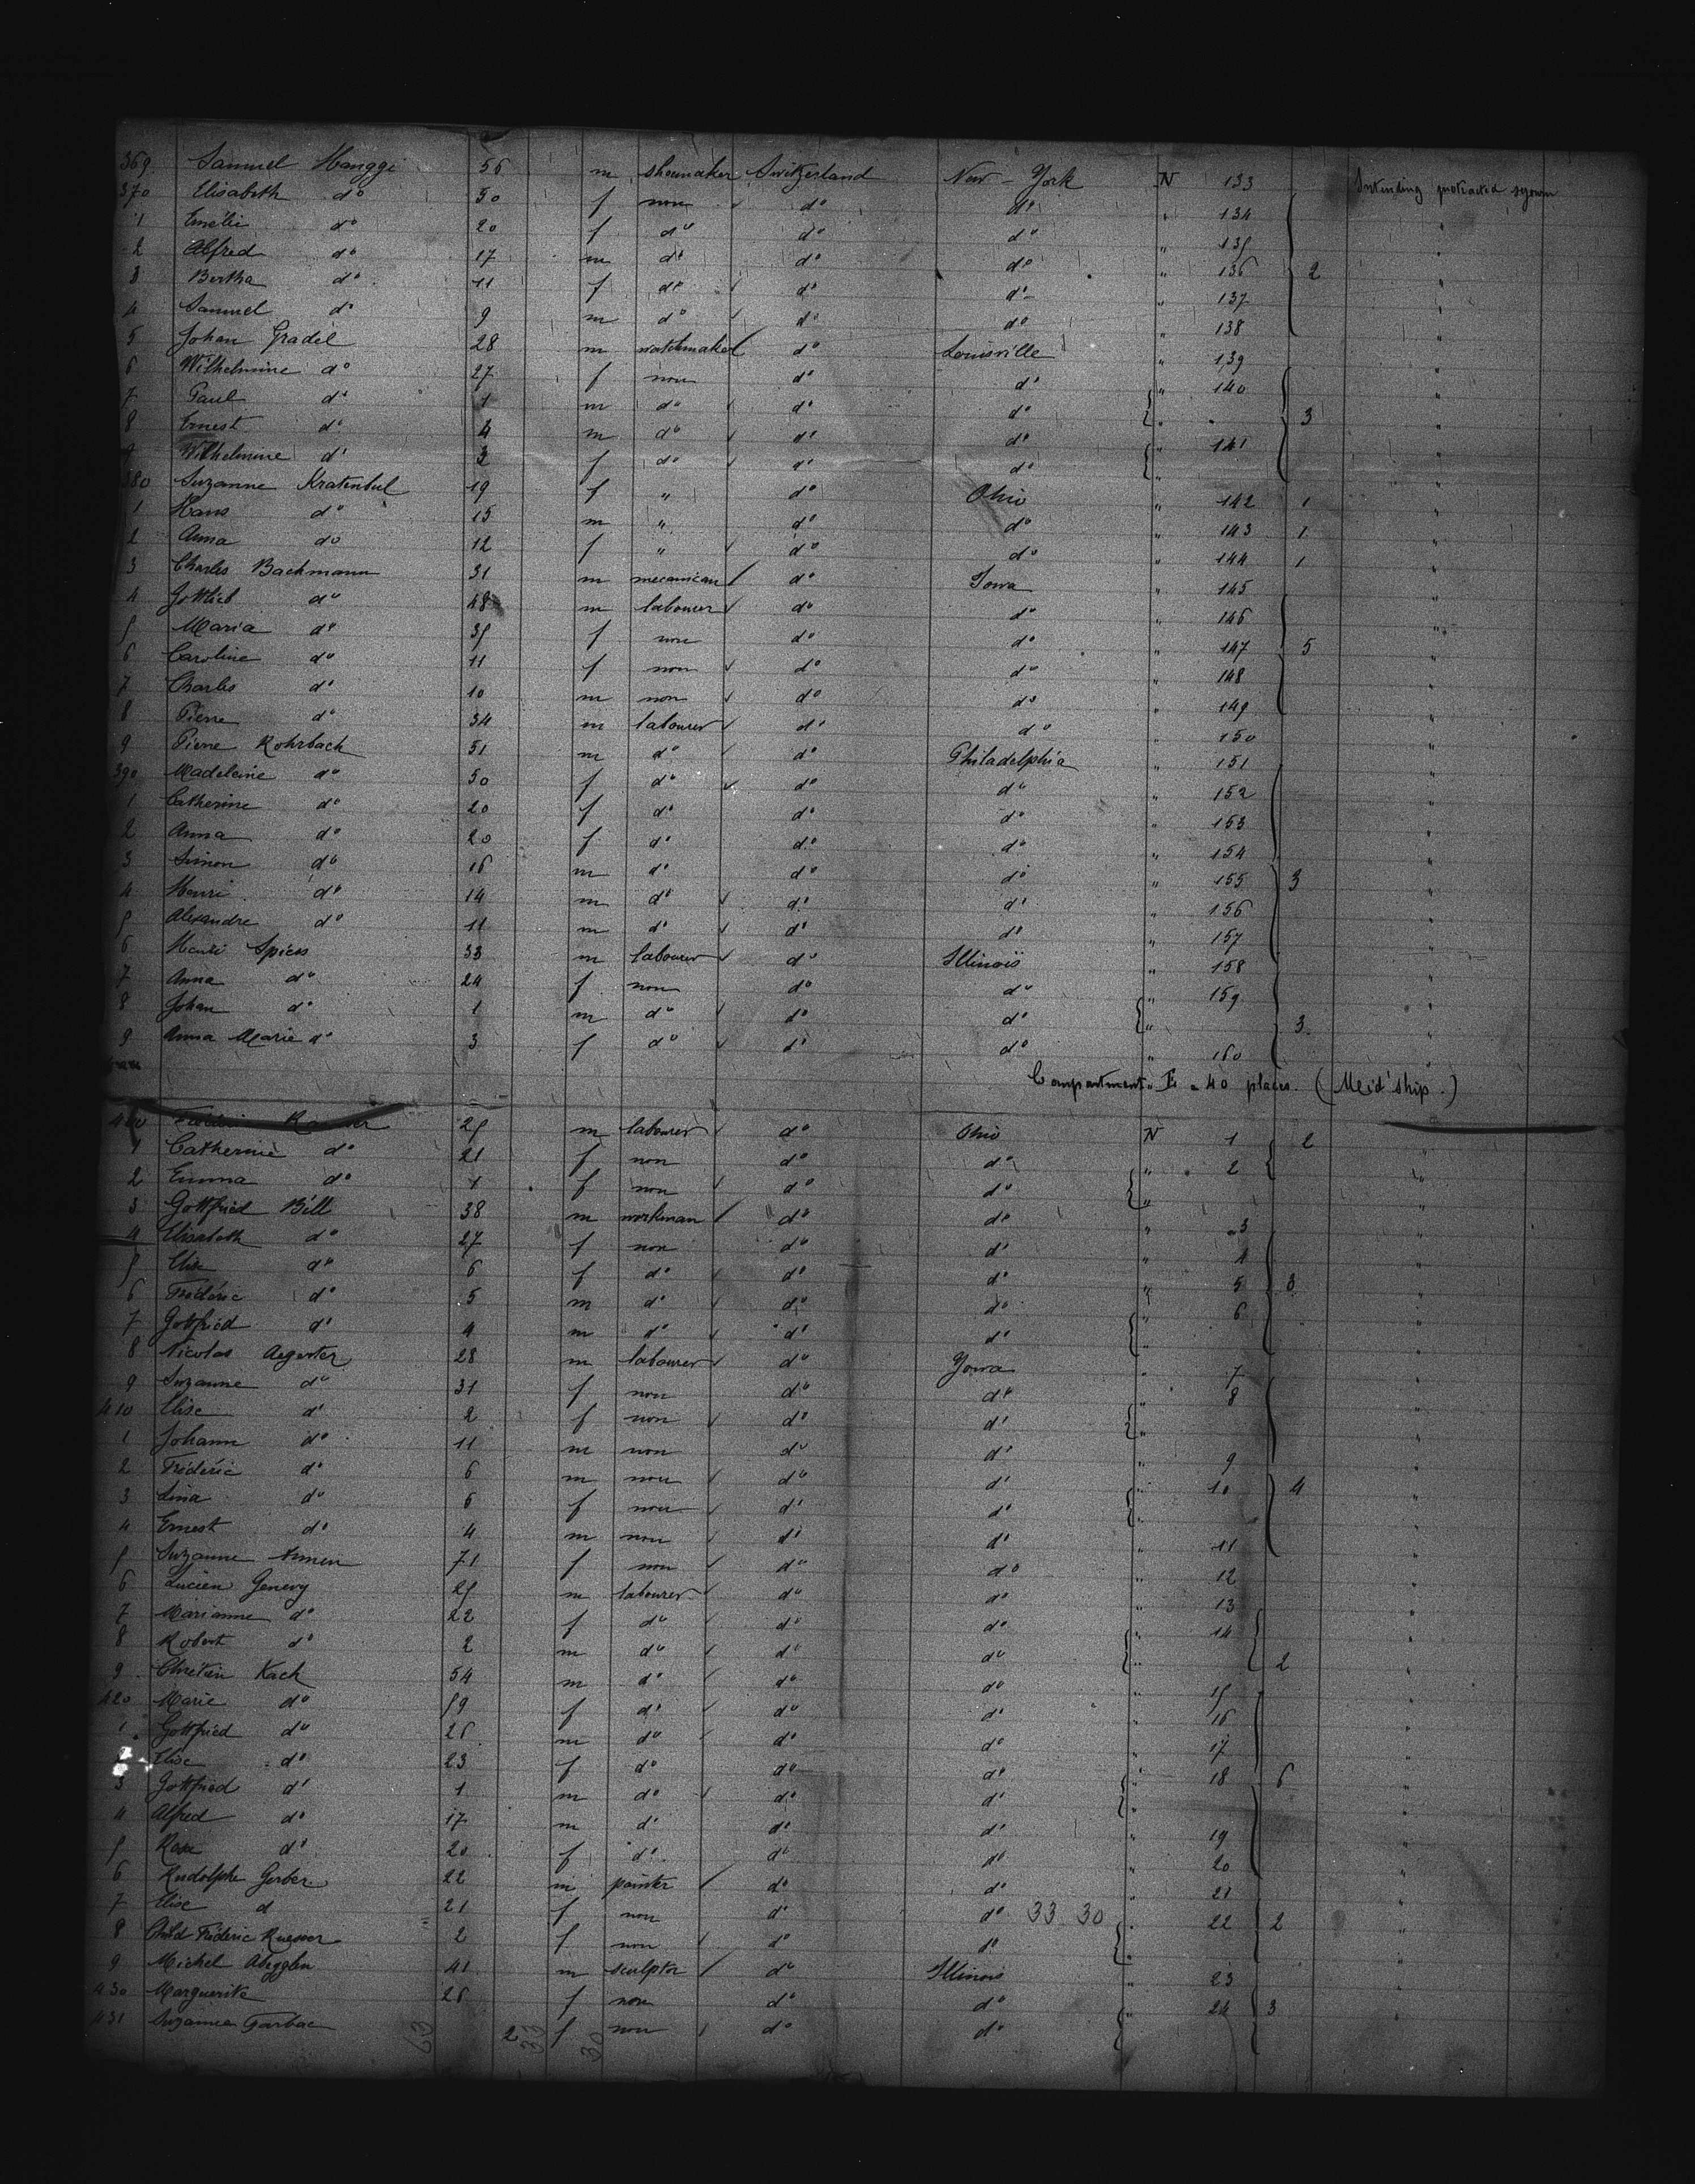 369 Samuel Hanggi 56 m shoumaker Switzerland New-York N 133 Intending protracted sejourn
370 Elisabeth do 50 f non do do " 134 "
1 Emélie do 20 f do do do " 135 "
2 Alfred do 17 m do do do " 136 2 "
3 Bertha do 11 f do do do " 137 "
4 Samuel do 9 m do do do " 138 "
5 Johan Gradel 28 m watchmaker do Louisville " 139 "
6 Wilhelmine do 27 f non do do " 140 "
7 Paul do 1 m do do do " " 3 "
8 Ernest do 4 m do do do " 141 "
9 Wilhelmine do 2 f do do do " "
380 Suzanne Kratenbul 19 f " do Ohio " 142 1 "
1 Hans do 15 m " do do " 143 1 "
2 Anna do 12 f " do do " 144 1 "
3 Charles Bachmann 31 m mecanican do Iowa " 145 "
4 Gottlieb do 48 m labourer do do " 146 "
5 Maria do 35 f non do do " 147 5 "
6 Caroline do 11 f non do do " 148 "
7 Charles do 10 m non do do " 149 "
8 Pierre do 34 m labourer do do " 150 "
9 Pierre Rohrbach 51 m do do Philadelphia " 151 "
390 Madeleine do 50 f do do do " 152 "
1 Catherine do 20 f do do do " 153 "
2 Anna do 20 f do do do " 154 "
3 Simon do 16 m do do do " 155 3 "
4 Henri do 14 m do do do " 156 "
5 Alexandre do 11 m do do do " 157 "
6 Henri Spicer 33 m labourer do Illinois " 158 "
7 Anna do 24 f non do do " 159 "
8 Johan do 1 m do do do " 3 "
9 Anna Marie do 3 f do do do " 160 "
Compartment E 40 places. (Meid'ship.)
400 25 m labourer do Ohio N 1 2
1 Catherine do 21 f non do do " 2 "
2 Emma do 1 f non do do " "
3 Gottfried Bill 38 m workman do do " 3 "
4 Elisabeth do 27 f non do do " 4 "
5 Elise do 6 f do do do " 5 3 "
6 Frédéric do 5 m do do do " 6 "
7 Gottfried do 4 m do do do " "
8 Nicolas Aegerter 28 m labourer do Yowa " 7 "
9 Suzanne do 31 f non do do " 8 "
410 Elise do 2 f non do do " "
1 Johann do 11 m non do do " 9 "
2 Frédéric do 6 m non do do " 10 4 "
3 Lina do 6 f non do do " "
4 Ernest do 4 m non do do " 11 "
5 Suzanne 71 f non do do " 12 "
6 Lucien Genevy 25 m labourer do do " 13 "
7 Marianne do 22 f do do do " 14 "
8 Robert do 2 m do do do " 2 "
9 Chretien Kach 54 m do do do " 15 "
420 Marie do 59 f do do do " 16 "
1 Gottfried do 26 m do do do " 17 "
Elise do 23 f do do do " 18 6 "
3 Gottfried do 1 m do do do " "
4 Alfred do 17 m do do do " 19 "
5 Rosa do 20 f do do do " 20 "
6 Rudolphe Gerber 22 m painter do do " 21 "
7 Elise d 21 f non do do 33 30 " 22 2 "
8 Child Fréderic Ruesser 2 f non do do " "
9 Michel Abegglen 41 m sculptor do Illinois " 23 "
430 Marguerite 26 f non do do " 24 3 "
431 Suzanne Garbac 2 f non do do
63 33 30